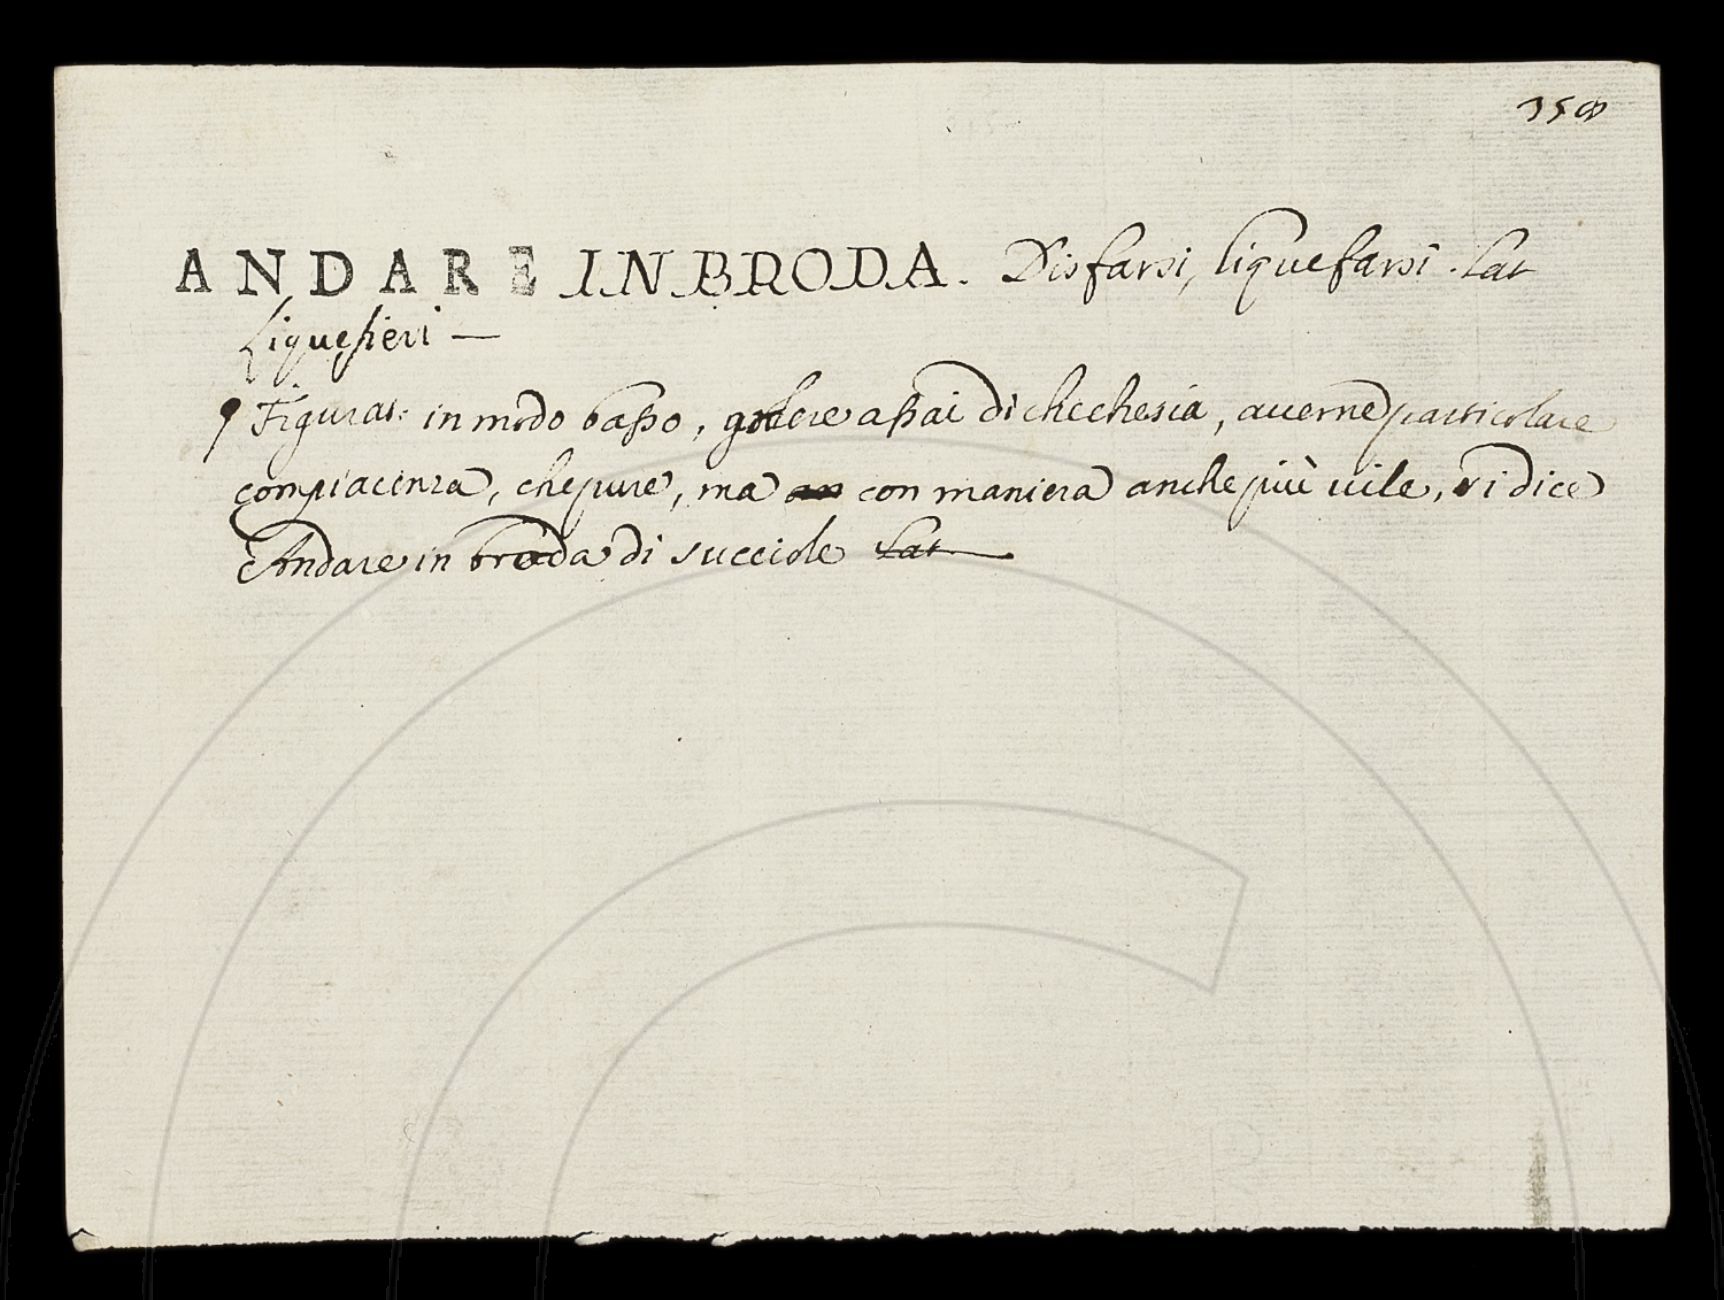 358
ANDARE IN BRODA. Disfarsi, liquefarsi. Lat
Liquefieri —
¶ Figurat: in modo basso, godere assai di chechesia, auerne particolare
compiacenza, che pure, ma con maniera anche più uile, si dice
Andare in broda di succiole Lat